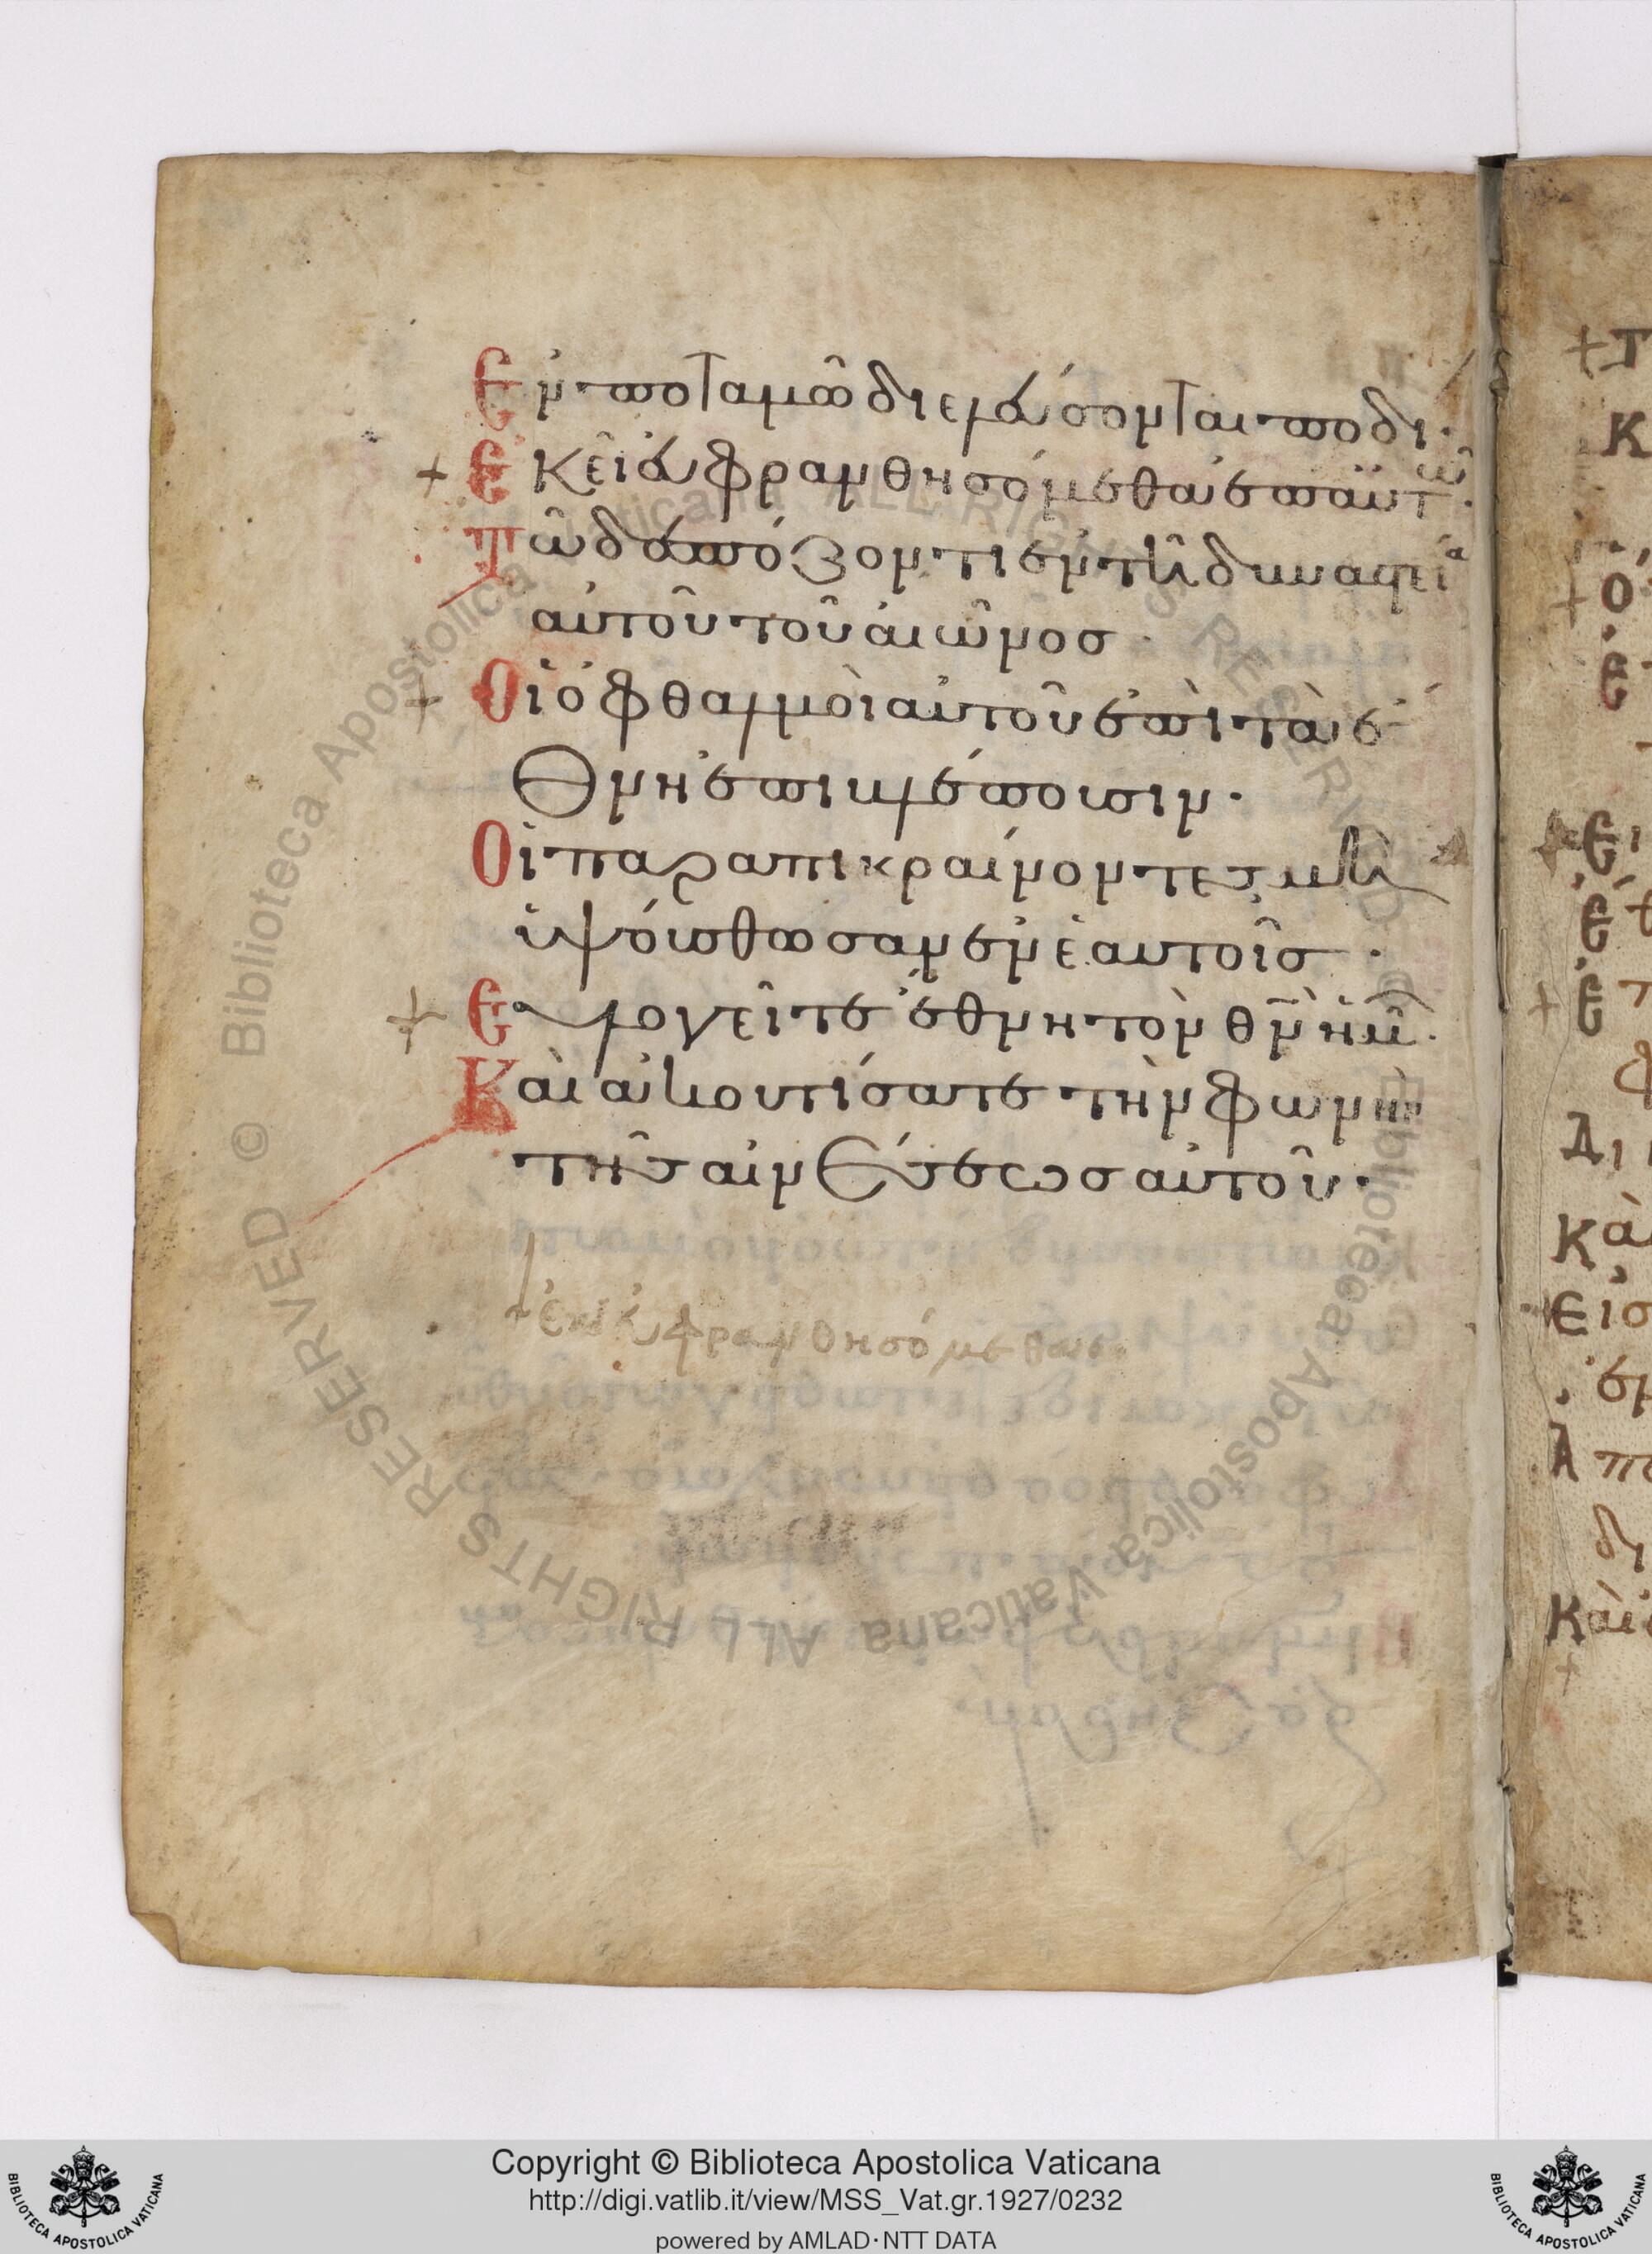 Ἐν ποταμῶ διελεύσονται ποδι·
+ Ἐκεῖ εὐφρανθησόμεθα ἐπαυτῶ·
Τῶ δεσπόζοντι ἐν τῆ δυναστεία
αὐτοῦ τοῦ αἰῶνος·
+ Οἱ ὀφθαλμοὶ αὐτοῦ ἐπὶ τὰ ἔ
θνη ἐπιβλέπουσιν·
Οἱ παραπικραίνοντες μὴ
ὑψούσθωσαν ἐν ἑαυτοῖς·
+ Εὐλογεῖτε ἔθνη τὸν θν ἡμ·
Καὶ ἀκουτίσατε τὴν φωνὴν
τῆς αἰνέσεως αὐτοῦ·
ἐκεῖ εὐφρανθησόμεθα
+Τ
Κ
+ ὁ
ἐ
Copyright © Biblioteca Apostolica Vaticana
http://digi.vatlib.it/view/MSS_Vat.gr.1927/0232
powered by AMLAD·NTT DATA
BIBLIOTECA APOSTOLICA VATICANA
BIBLIOTECA APOSTOLICA VATICANA
© Biblioteca Apostolica Vaticana ALL RIGHTS RESERVED © Biblioteca Apostolica Vaticana ALL RIGHTS RESERVED